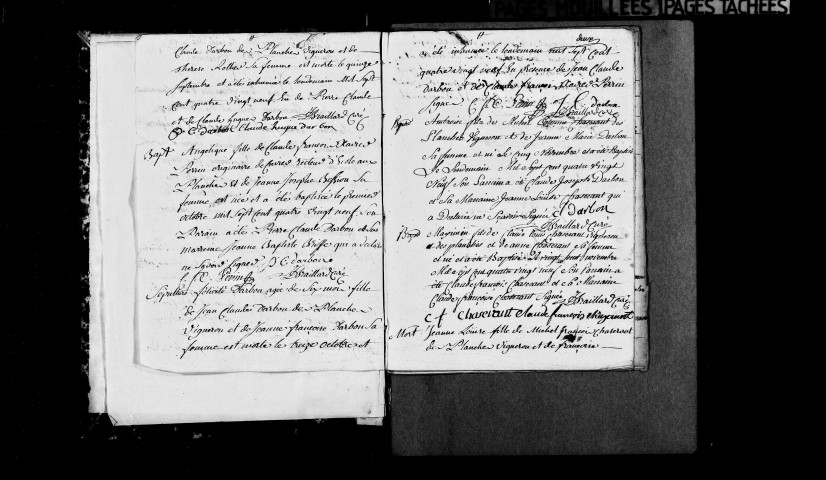 PAGES MOUILLÉES PAGES TACHÉES
Claude Darbon de Planche vigneron et de
therese Rollier sa femme est morte le quinze
septembre et a été inhumée le lendemain mil sept
cent quatre vingt neuf en de Pierre Claude
et de Claude hugue Darbon Braillard curé
P C darbon Claude huque darbon
Bapt Angelique fille de Claude francois xavier
Perrin originaire de recteur d'école aux
Planche et de Jeanne Josephe sa
femme est née et a étés baptisée le premier
octobre mil sept cent quatre vingt neuf son
Parain a été Pierre Claude Darbon et sa
marreine Jeanne Baptiste qui a declaré
ne savoir signer P C darbon
f C Perrin Braillard curé
Sepulture felicité Darbon agée de six mois fille
de Jean Claude Darbon de Planche
vigneron et de Jeanne françoise Darbon sa
femme est morte le treize octobre et
deux
a été inhumée le lendemain mil sept cent
quatre vingt neuf en presence de Jean Claude
Darbon et de Claude françois Xavier Perrin
signé C f C Perrin J C darbon
Braillard curé
Bapt fille de Michel chasevant des
Planches vigneron et de Jeanne Marie Darbon
sa femme et né le cinq novembre et a été Baptisé
le lendemain mil sept cent quatre vingt
neuf son Parrain a été Claude Joseph Darbon
et sa Maraine Jeanne Louise chasevant qui
a declaré ne savoir signer C J Darbon
Braillard curé
Bapt fils de Claude Louis chasevant vigneron
des planches et de anne chasevant sa femme
est né et a été Baptisé le vingt sept novembre
mil sept cent quatre vingt neuf son Parrain a
été Claude françois Chasevant et sa Maraine
Claude françoise chasevant signé Braillard curé
C f chasevant Claude francoise chasevant
Mort Jeanne Louise fille de Michel françois chasevant
de Planche vigneron et de françoise